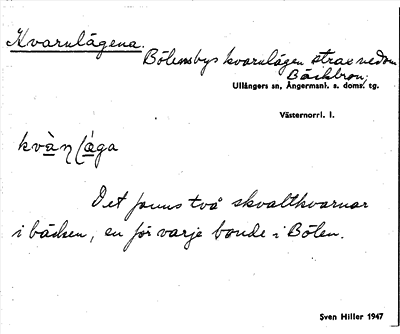 Kvarnlägena.
Bölensbys kvarnlägen strax nedom
Bäckbron,
Ullångers sn, Ångermanl. s. doms. tg.
Västernorrl. l.
kvàn lága
Det fanns två skvaltkvarnar
i bäcken, en för varje bonde i Bölen.
Sven Hiller 1947